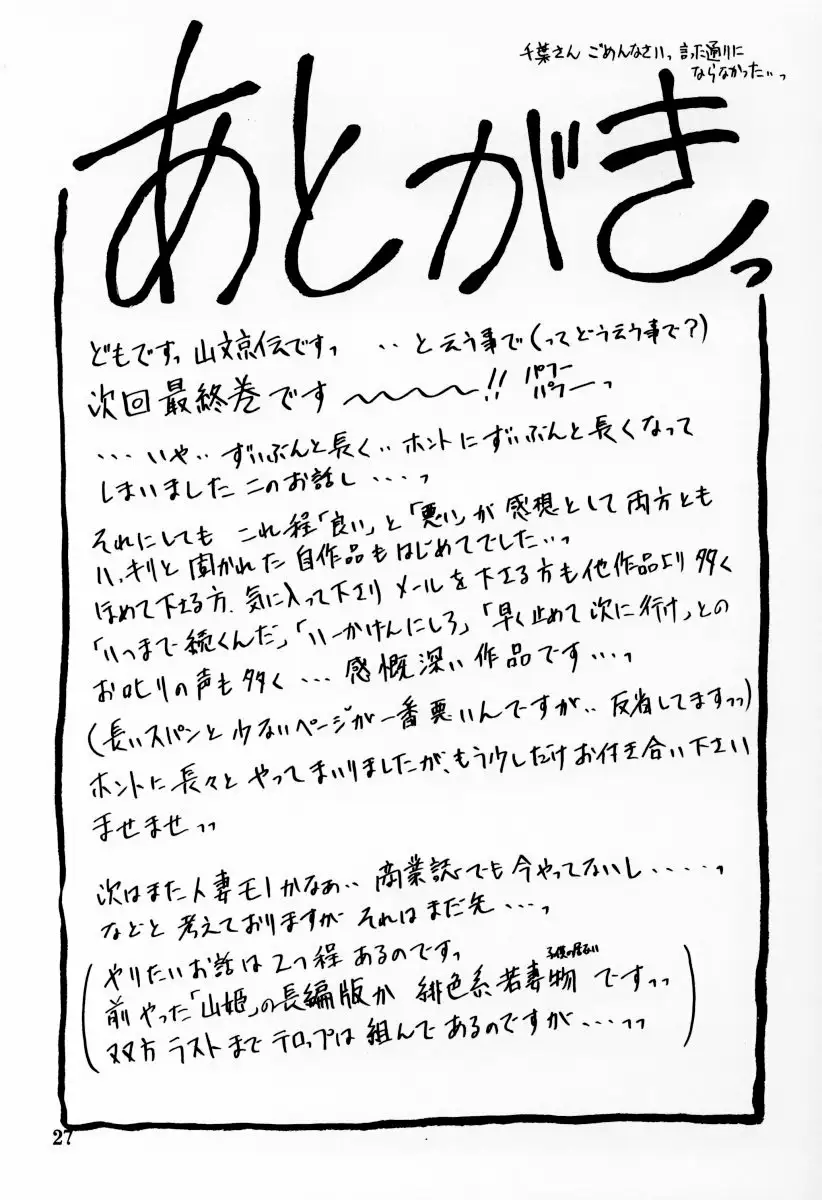 千葉さん ごめんなさいっ 言った通りに
ならなかった…っ
あとがきっ
どもですっ 山文京伝ですっ ‥と云う事で(ってどう云う事で?)
次回最終巻です〜〜〜〜!! パフーパフーっ
・・・いや‥ ずいぶんと長く‥ホントにずいぶんと長くなって
しまいましたこのお話し・・・っ
それにしても これ程「良い」と「悪い」が 感想として両方とも
ハッキリと聞かれた自作品もはじめてでした…っ
ほめて下さる方、気に入って下さり メールを下さる方も他作品より多く
「いつまで続くんだ」「いーかげんにしろ」「早く止めて次に行け」との
お叱りの声も多く・・・感慨深い作品です・・・っ
(長いスパンと少ないページが一番悪いんですが‥反省してますっっ)
ホントに長々とやってまいりましたが、もう少しだけお付き合い下さい
ませませっっ
次はまた人妻モノかなぁ‥ 商業誌でも今やってないし・・・・っ
などと考えておりますが それはまだ先・・・っ
(やりたいお話は2つ程あるのですっ
前やった「山姫」の長編版か 緋色系若妻物 ですっっ
子供の居ない
双方ラストまでテロップは組んであるのですが・・・っっ)
27